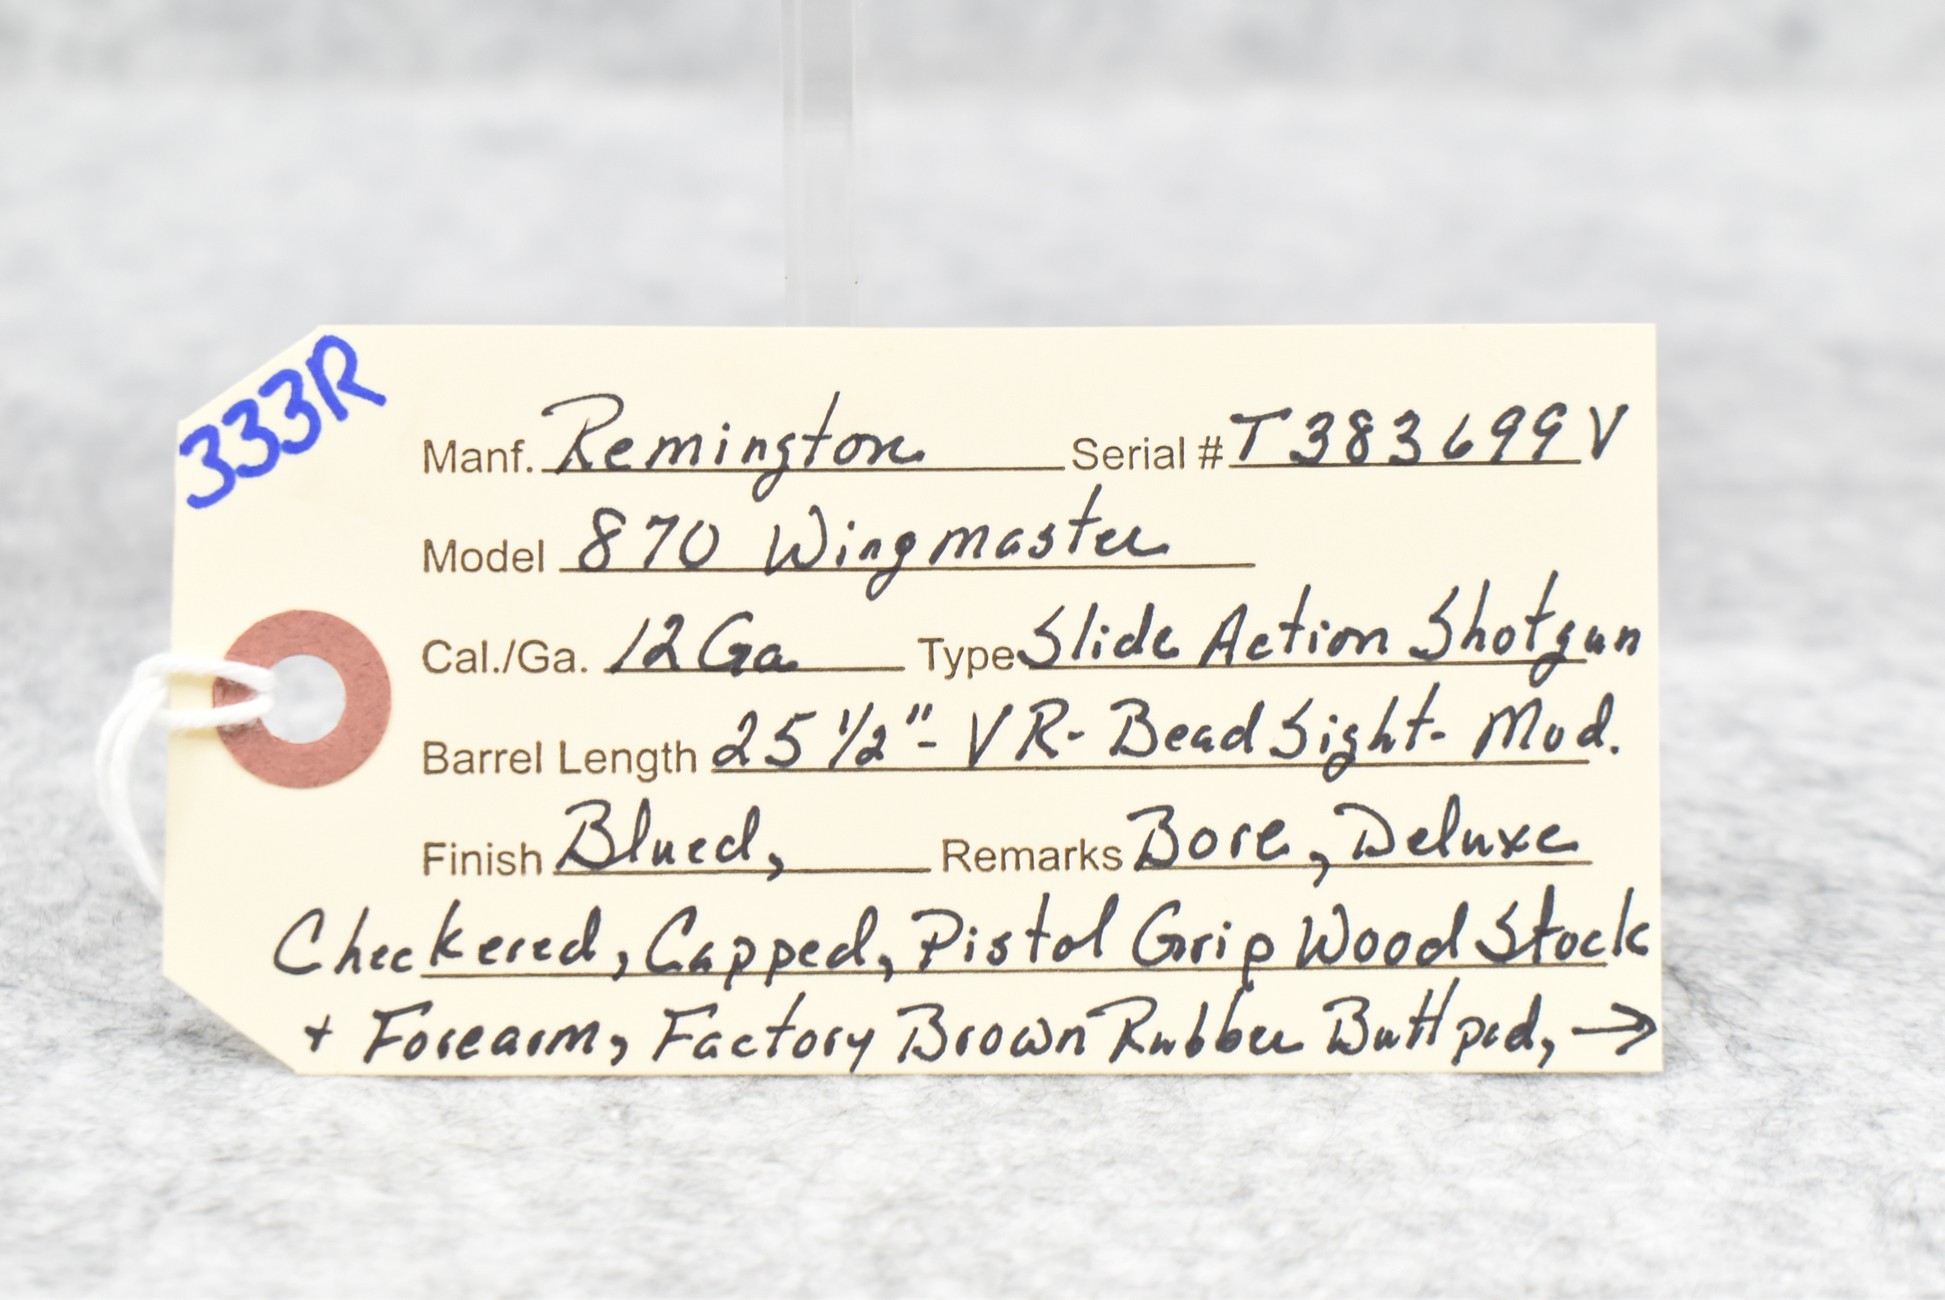 333R
Manf. Remington Serial # T383699V
Model 870 Wingmaster
Cal./Ga. 12 Ga Type Slide Action Shotgun
Barrel Length 25 1/2"- VR- Bead Sight- Mod.
Finish Blued, Remarks Bore, Deluxe
Checkered, Capped, Pistol Grip Wood Stock
+ Forearm, Factory Brown Rubber Buttpad, →